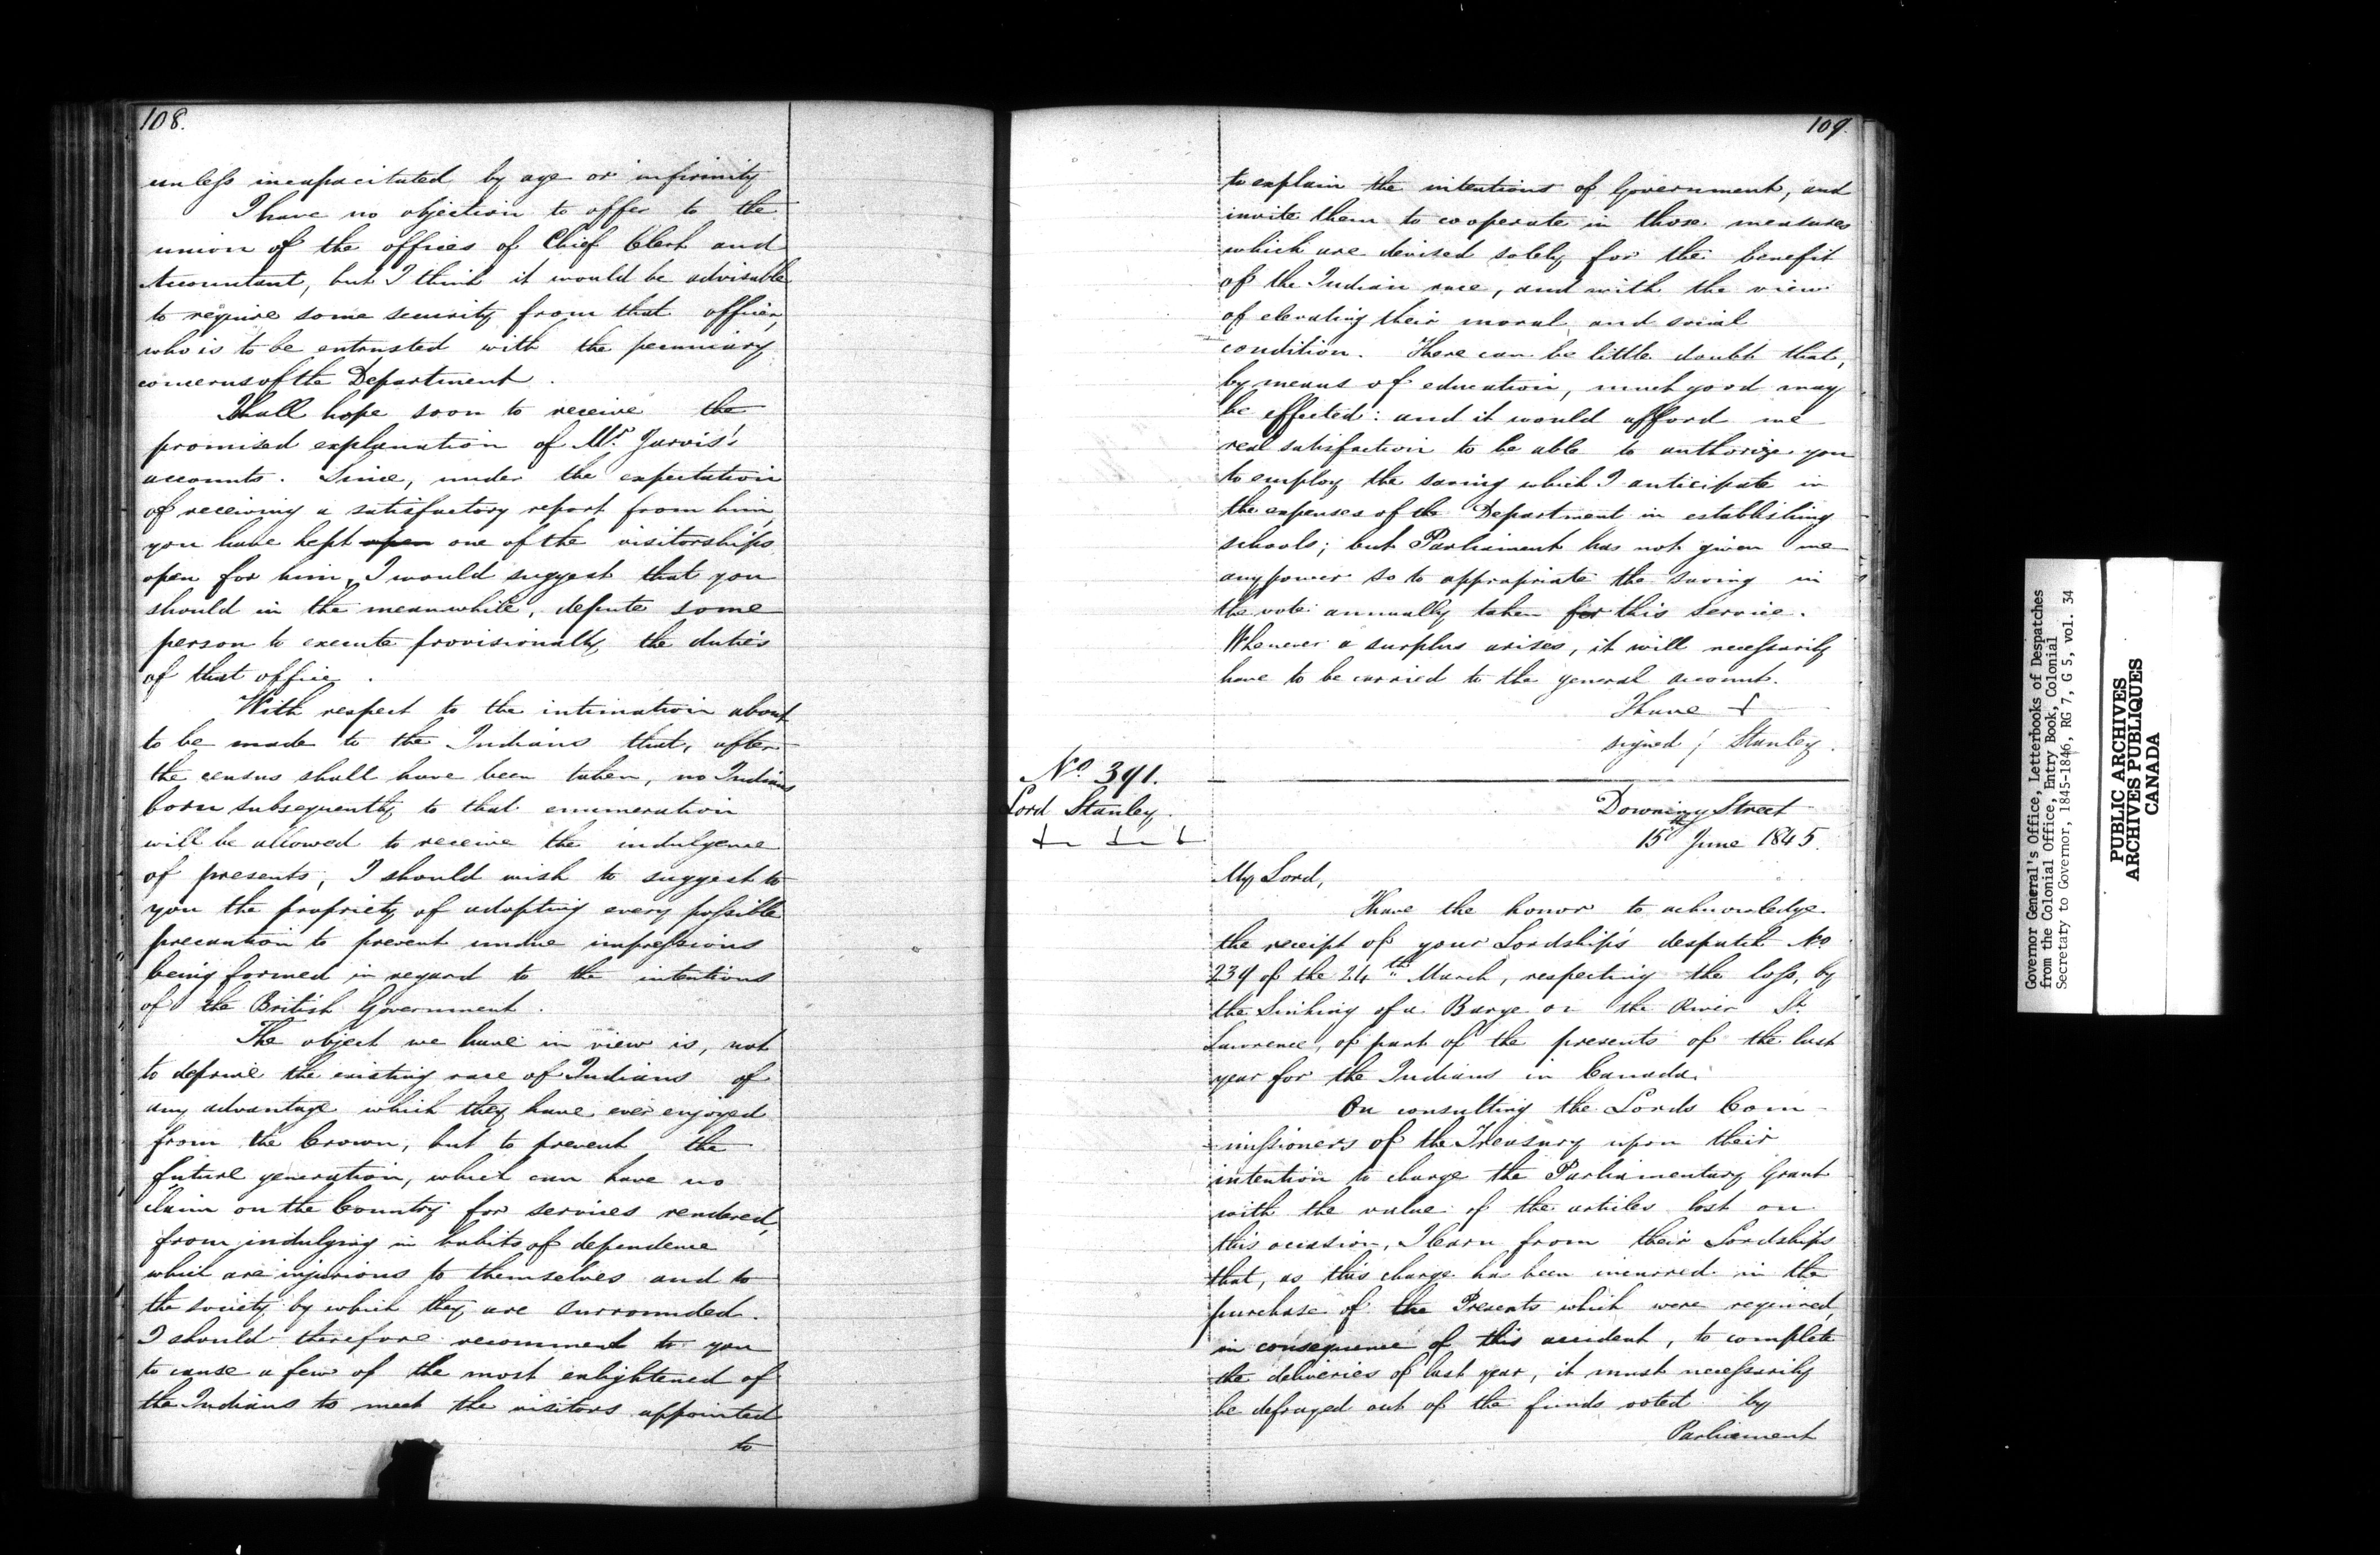 108.
unless incapacitated by age or infirmity
I have no objection to offer to the
union of the offices of Chief Clerk and
Accountant, but I think it would be advisable
to require some security from that officer,
who is to be entrusted with the pecuniary
concerns of the Department.
I shall hope soon to receive the
promised explanation of Mr. Jarvis's
accounts. Since, under the expectation
of receiving a satisfactory report from him,
you have kept open one of the visitorships
open for him, I would suggest that you
should in the meanwhile, depute some
person to execute provisionally the duties
of that office.
With respect to the intimation about
to be made to the Indians that, after
the census shall have been taken, no Indians
born subsequently to that enumeration
will be allowed to receive the indulgence
of presents, I should wish to suggest to
you the propriety of adopting every possible
precaution to prevent undue impressions
being formed in regard to the intentions
of the British Government.
The object we have in view is, not
to deprive the existing race of Indians of
any advantage which they have ever enjoyed
from the Crown, but to prevent the
future generation, which can have no
claim on the Country for services rendered,
from indulging in habits of dependence
which are injurious to themselves and to
the society by which they are surrounded.
I should therefore recommend to you
to cause a few of the most enlightened of
the Indians to meet the visitors appointed
to
109.
to explain the intentions of Government, and
invite them to cooperate in those measures
which are devised solely for the benefit
of the Indian race, and with the view
of elevating their moral and social
condition. There can be little doubt that,
by means of education, much good may
be effected: and it would afford me
real satisfaction to be able to authorize you
to employ the saving which I anticipate in
the expenses of the Department in establishing
schools; but Parliament has not given me
any power so to appropriate the saving in
the vote annually taken for this service.
Whenever a surplus arises, it will necessarily
have to be carried to the general account.
I have &
signed / Stanley.
No. 391.
Lord Stanley.
Downing Street
15th June 1845.
My Lord,
I have the honor to acknowledge
the receipt of your Lordship's despatch No.
239 of the 24th March, respecting the loss, by
the Sinking of a Barge on the River St.
Lawrence, of part of the presents of the last
year for the Indians in Canada.
On consulting the Lords Com-
-missioners of the Treasury upon their
intention to charge the Parliamentary Grant
with the value of the articles lost on
this occasion, I learn from their Lordships
that, as this charge has been incurred in the
purchase of the Presents which were required,
in consequence of this accident, to complete
the deliveries of last year, it must necessarily
be defrayed out of the funds voted by
Parliament
Governor General's Office, Letterbooks of Despatches
from the Colonial Office, Entry Book, Colonial
Secretary to Governor, 1845-1846, RG 7, G 5, vol. 34
PUBLIC ARCHIVES
ARCHIVES PUBLIQUES
CANADA